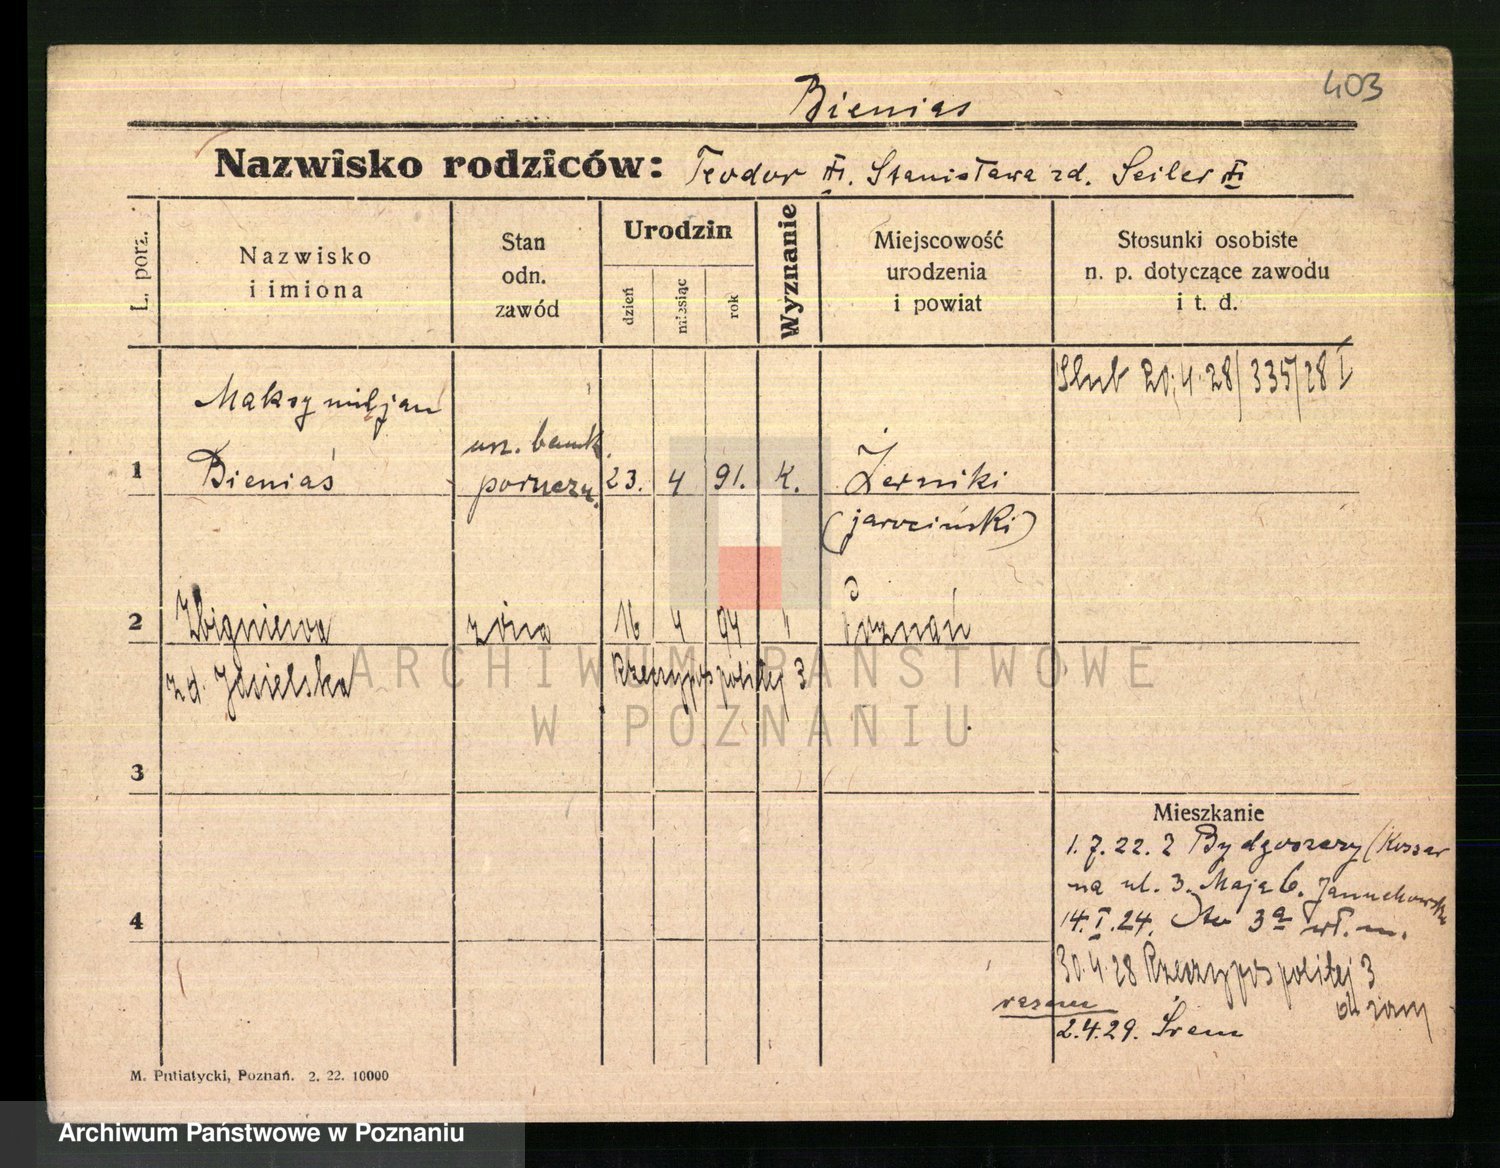 403
Bienias
Nazwisko rodziców: Teodor. Stanisława zd. Seiler
L. porz.
Nazwisko i imiona
Stan odn. zawód
Urodzin
dzień
miesiąc
rok
Wyznanie
Miejscowość urodzenia i powiat
Stosunki osobiste n. p. dotyczące zawodu i t. d.
Ślub 20.4.28/335/28 I
Maksymiljan
1 Bieniaś urz. bank. 23. 4 91. K. Żerniki
(jarociński)
2 Zbigniewa żona 16 4 94 " Poznań
zd. Jasielska Rzeczypospolitej 3
3
Mieszkanie
1.7.22. z Bydgoszczy (Koszar
na ul. 3. Maja 6. Januchowski
4
14.I.24. 3a wł. m.
30.4.28 Rzeczypospolitej 3
razem
2.4.29. Śrem
M. Putiatycki, Poznań. 2. 22. 10000
ARCHIWUM PAŃSTWOWE
W POZNANIU
Archiwum Państwowe w Poznaniu